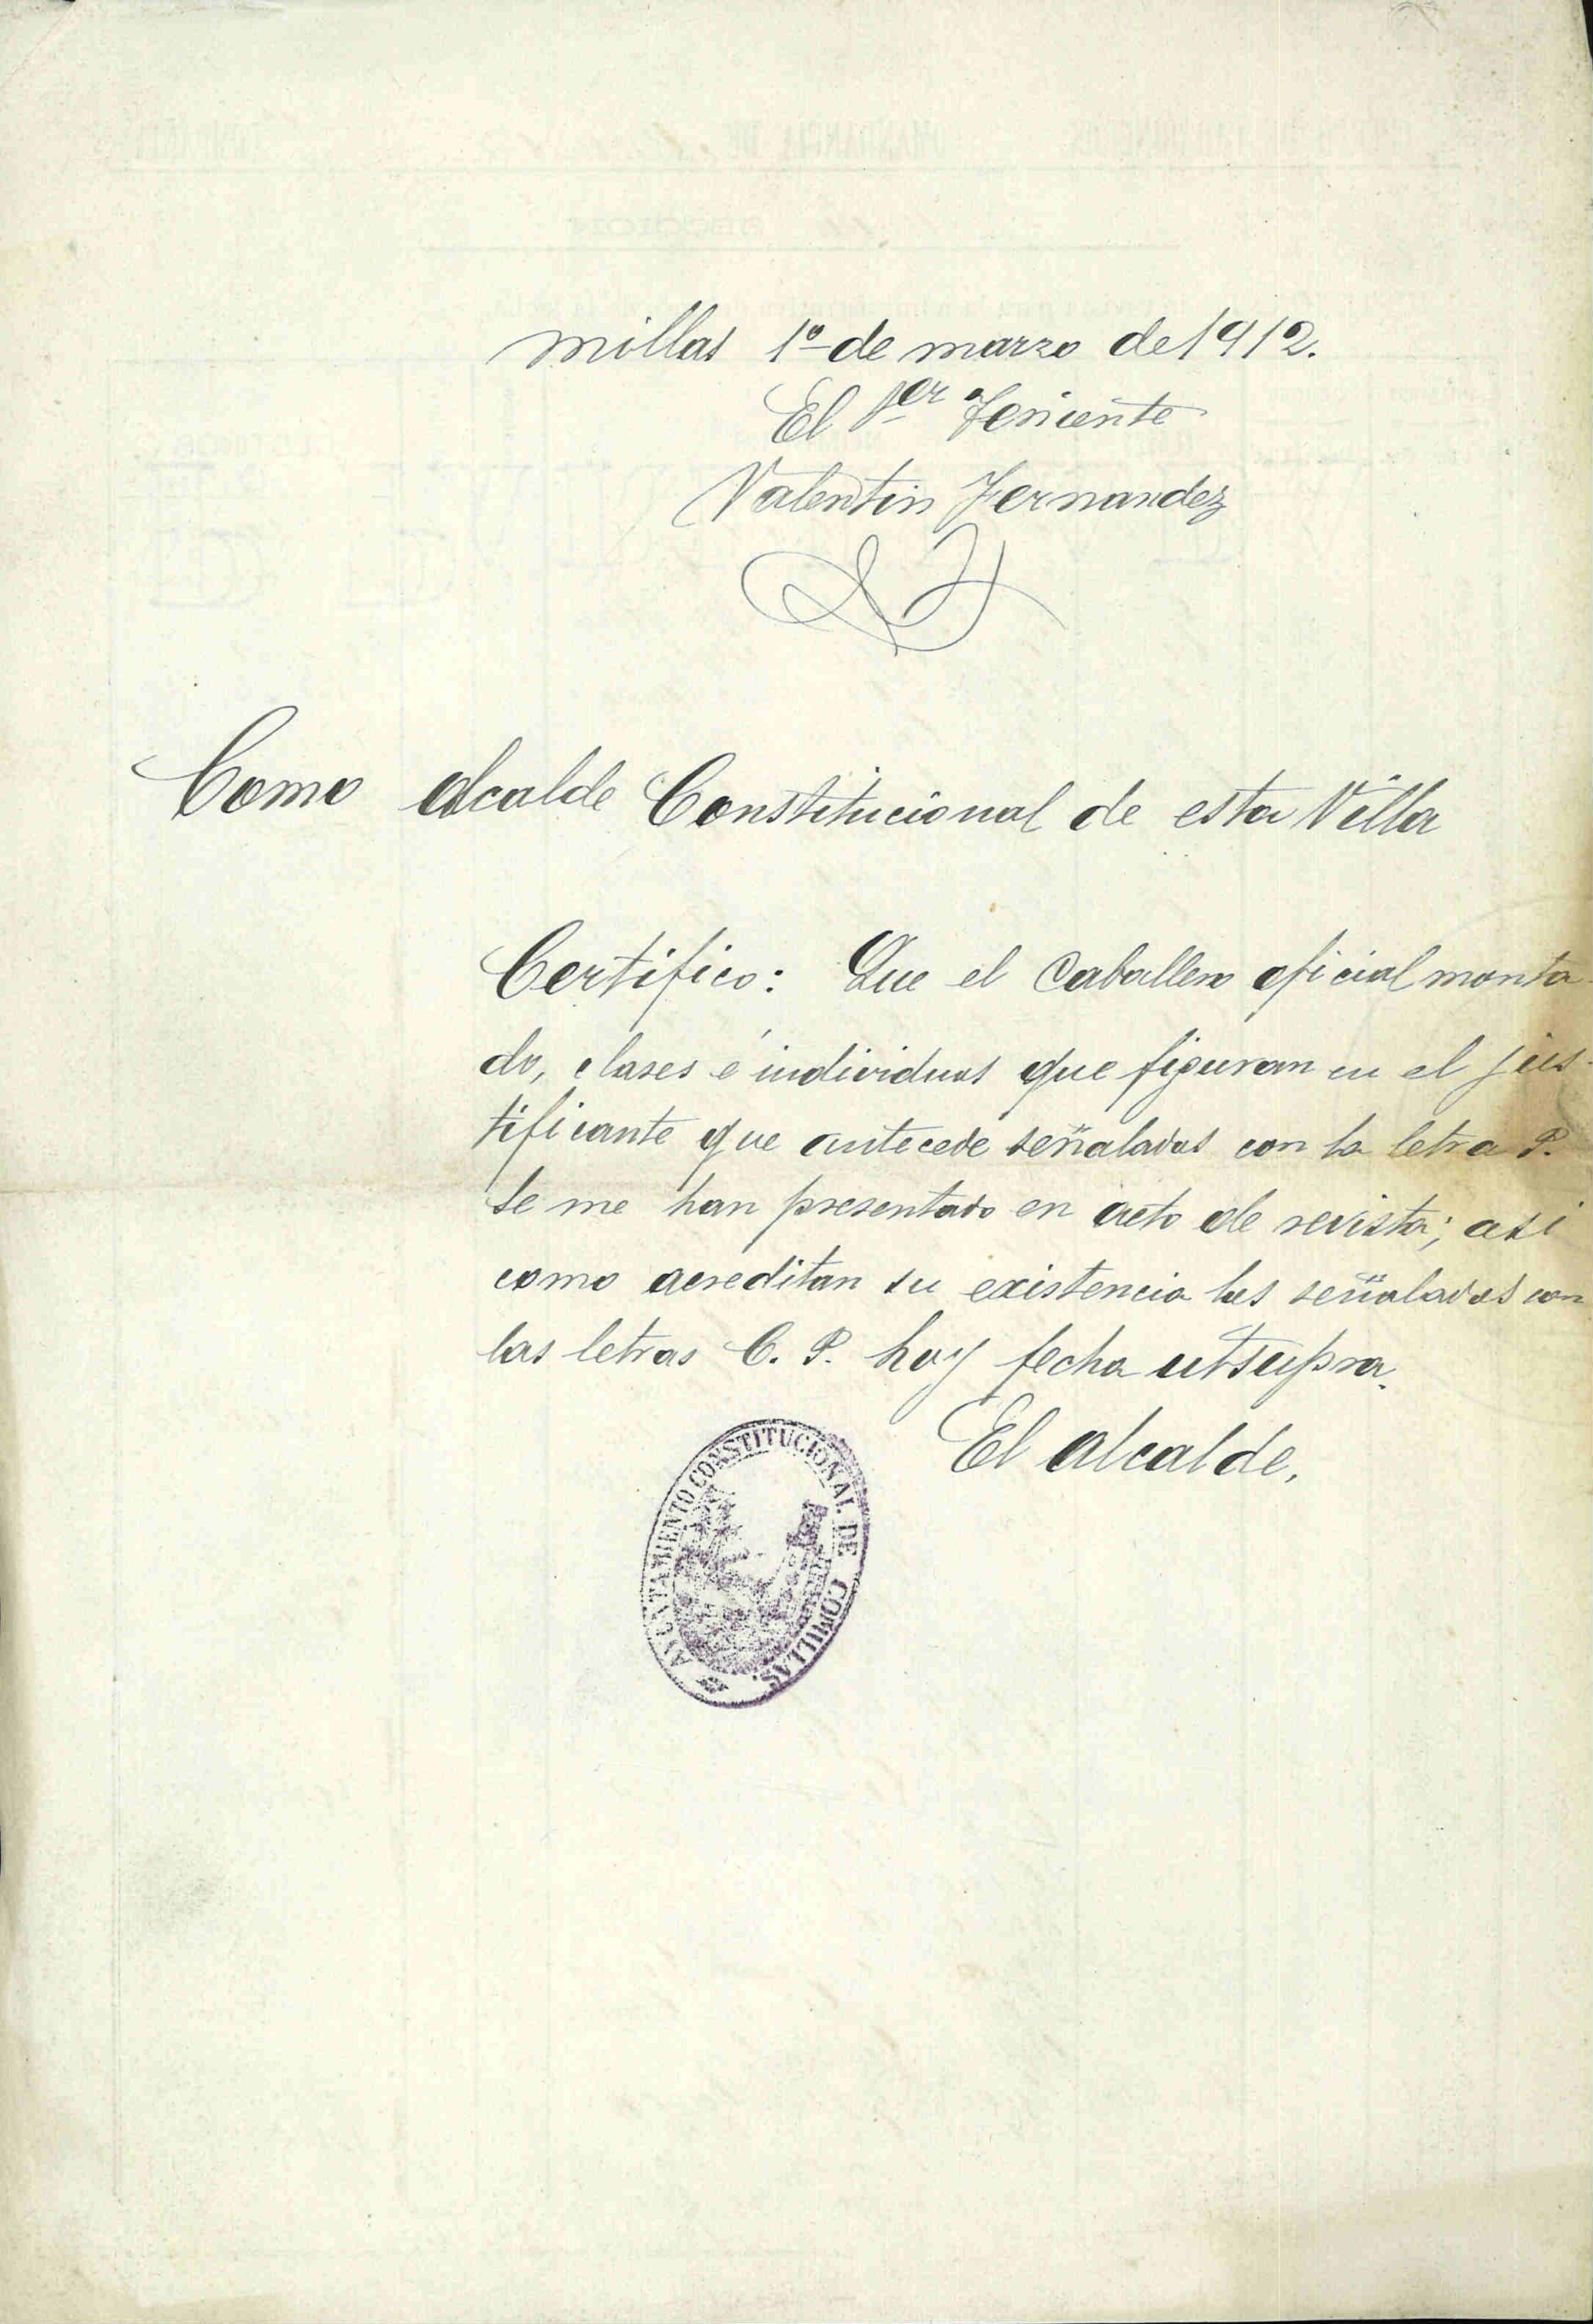 millas 1º de marzo de 1912.
El 1er Teniente
Valentin Fernandez
Como alcalde Constitucional de esta Villa
Certifico: Que el Caballero oficial monta-
do, clases é individuos que figuran en el jus-
tificante que antecede señalados con la letra P.
se me han presentado en acto de revista; asi
como acreditan su existencia los señalados con
las letras C. P. hoy fecha utsupra.
El alcalde,
AYUNTAMIENTO CONSTITUCIONAL DE COMILLAS.